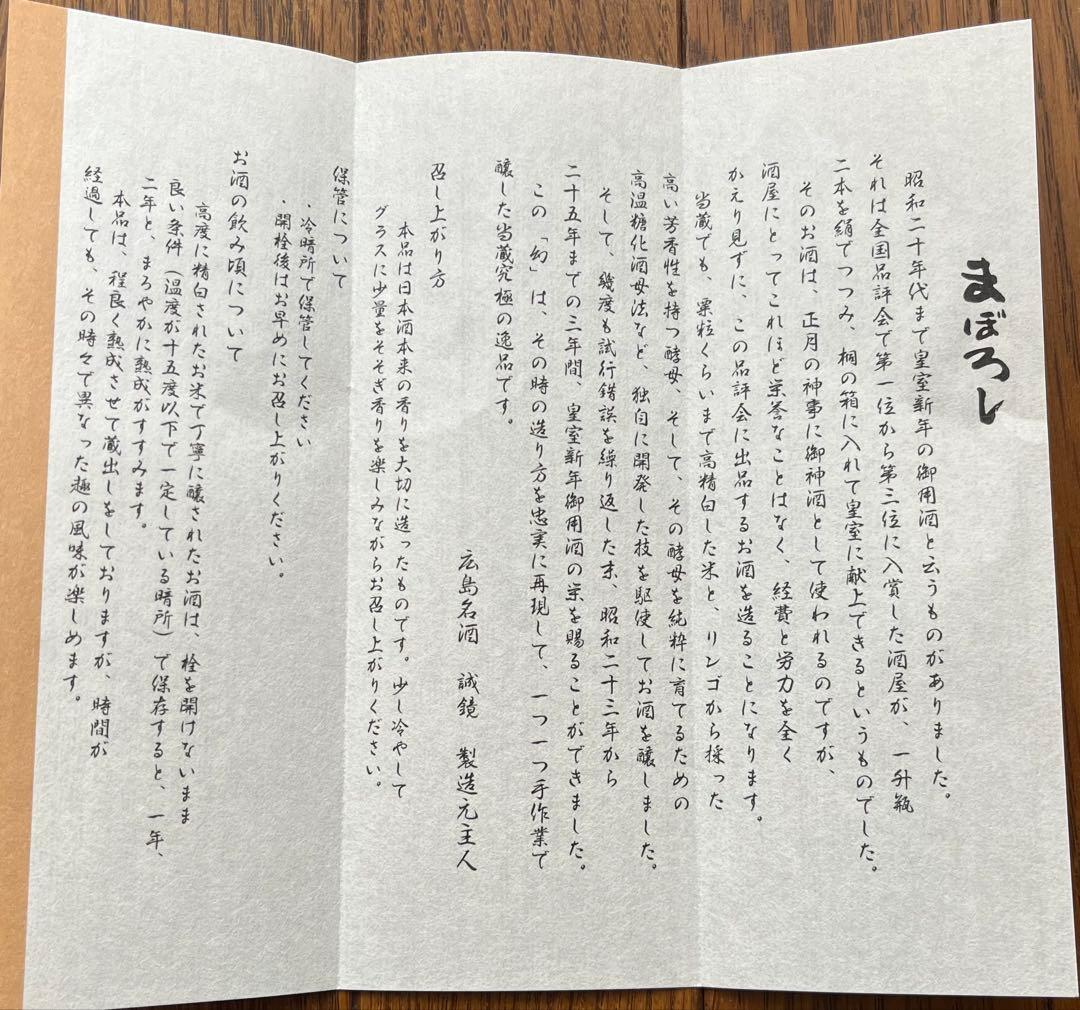 まぼろし
昭和二十年代まで皇室新年の御用酒と云うものがありました。
それは全国品評会で第一位から第三位に入賞した酒屋が、一升瓶
二本を絹でつつみ、桐の箱に入れて皇室に献上できるというものでした。
そのお酒は、正月の神事に御神酒として使われるのですが、
酒屋にとってこれほど栄誉なことはなく、経費と労力を全く
かえり見ずに、この品評会に出品するお酒を造ることになります。
当蔵でも、粟粒くらいまで高精白した米と、リンゴから採った
高い芳香性を持つ酵母、そして、その酵母を純粋に育てるための
高温糖化酒母法など、独自に開発した技を駆使してお酒を醸しました。
そして、幾度も試行錯誤を繰り返した末、昭和二十三年から
二十五年までの三年間、皇室新年御用酒の栄を賜ることができました。
この「幻」は、その時の造り方を忠実に再現して、一つ一つ手作業で
醸した当蔵究極の逸品です。
広島名酒 誠鏡 製造元主人
召し上がり方
本品は日本酒本来の香りを大切に造ったものです。少し冷やして
グラスに少量をそそぎ香りを楽しみながらお召し上がりください。
保管について
・冷暗所で保管してください
・開栓後はお早めにお召し上がりください。
お酒の飲み頃について
高度に精白されたお米で丁寧に醸されたお酒は 栓を開けないまま
良い条件(温度が十五度以下で一定している暗所)で保存すると、一年、
二年と、まろやかに熟成がすすみます。
本品は、程良く熟成させて蔵出しをしておりますが、時間が
経過しても、その時々で異なった趣の風味が楽しめます。